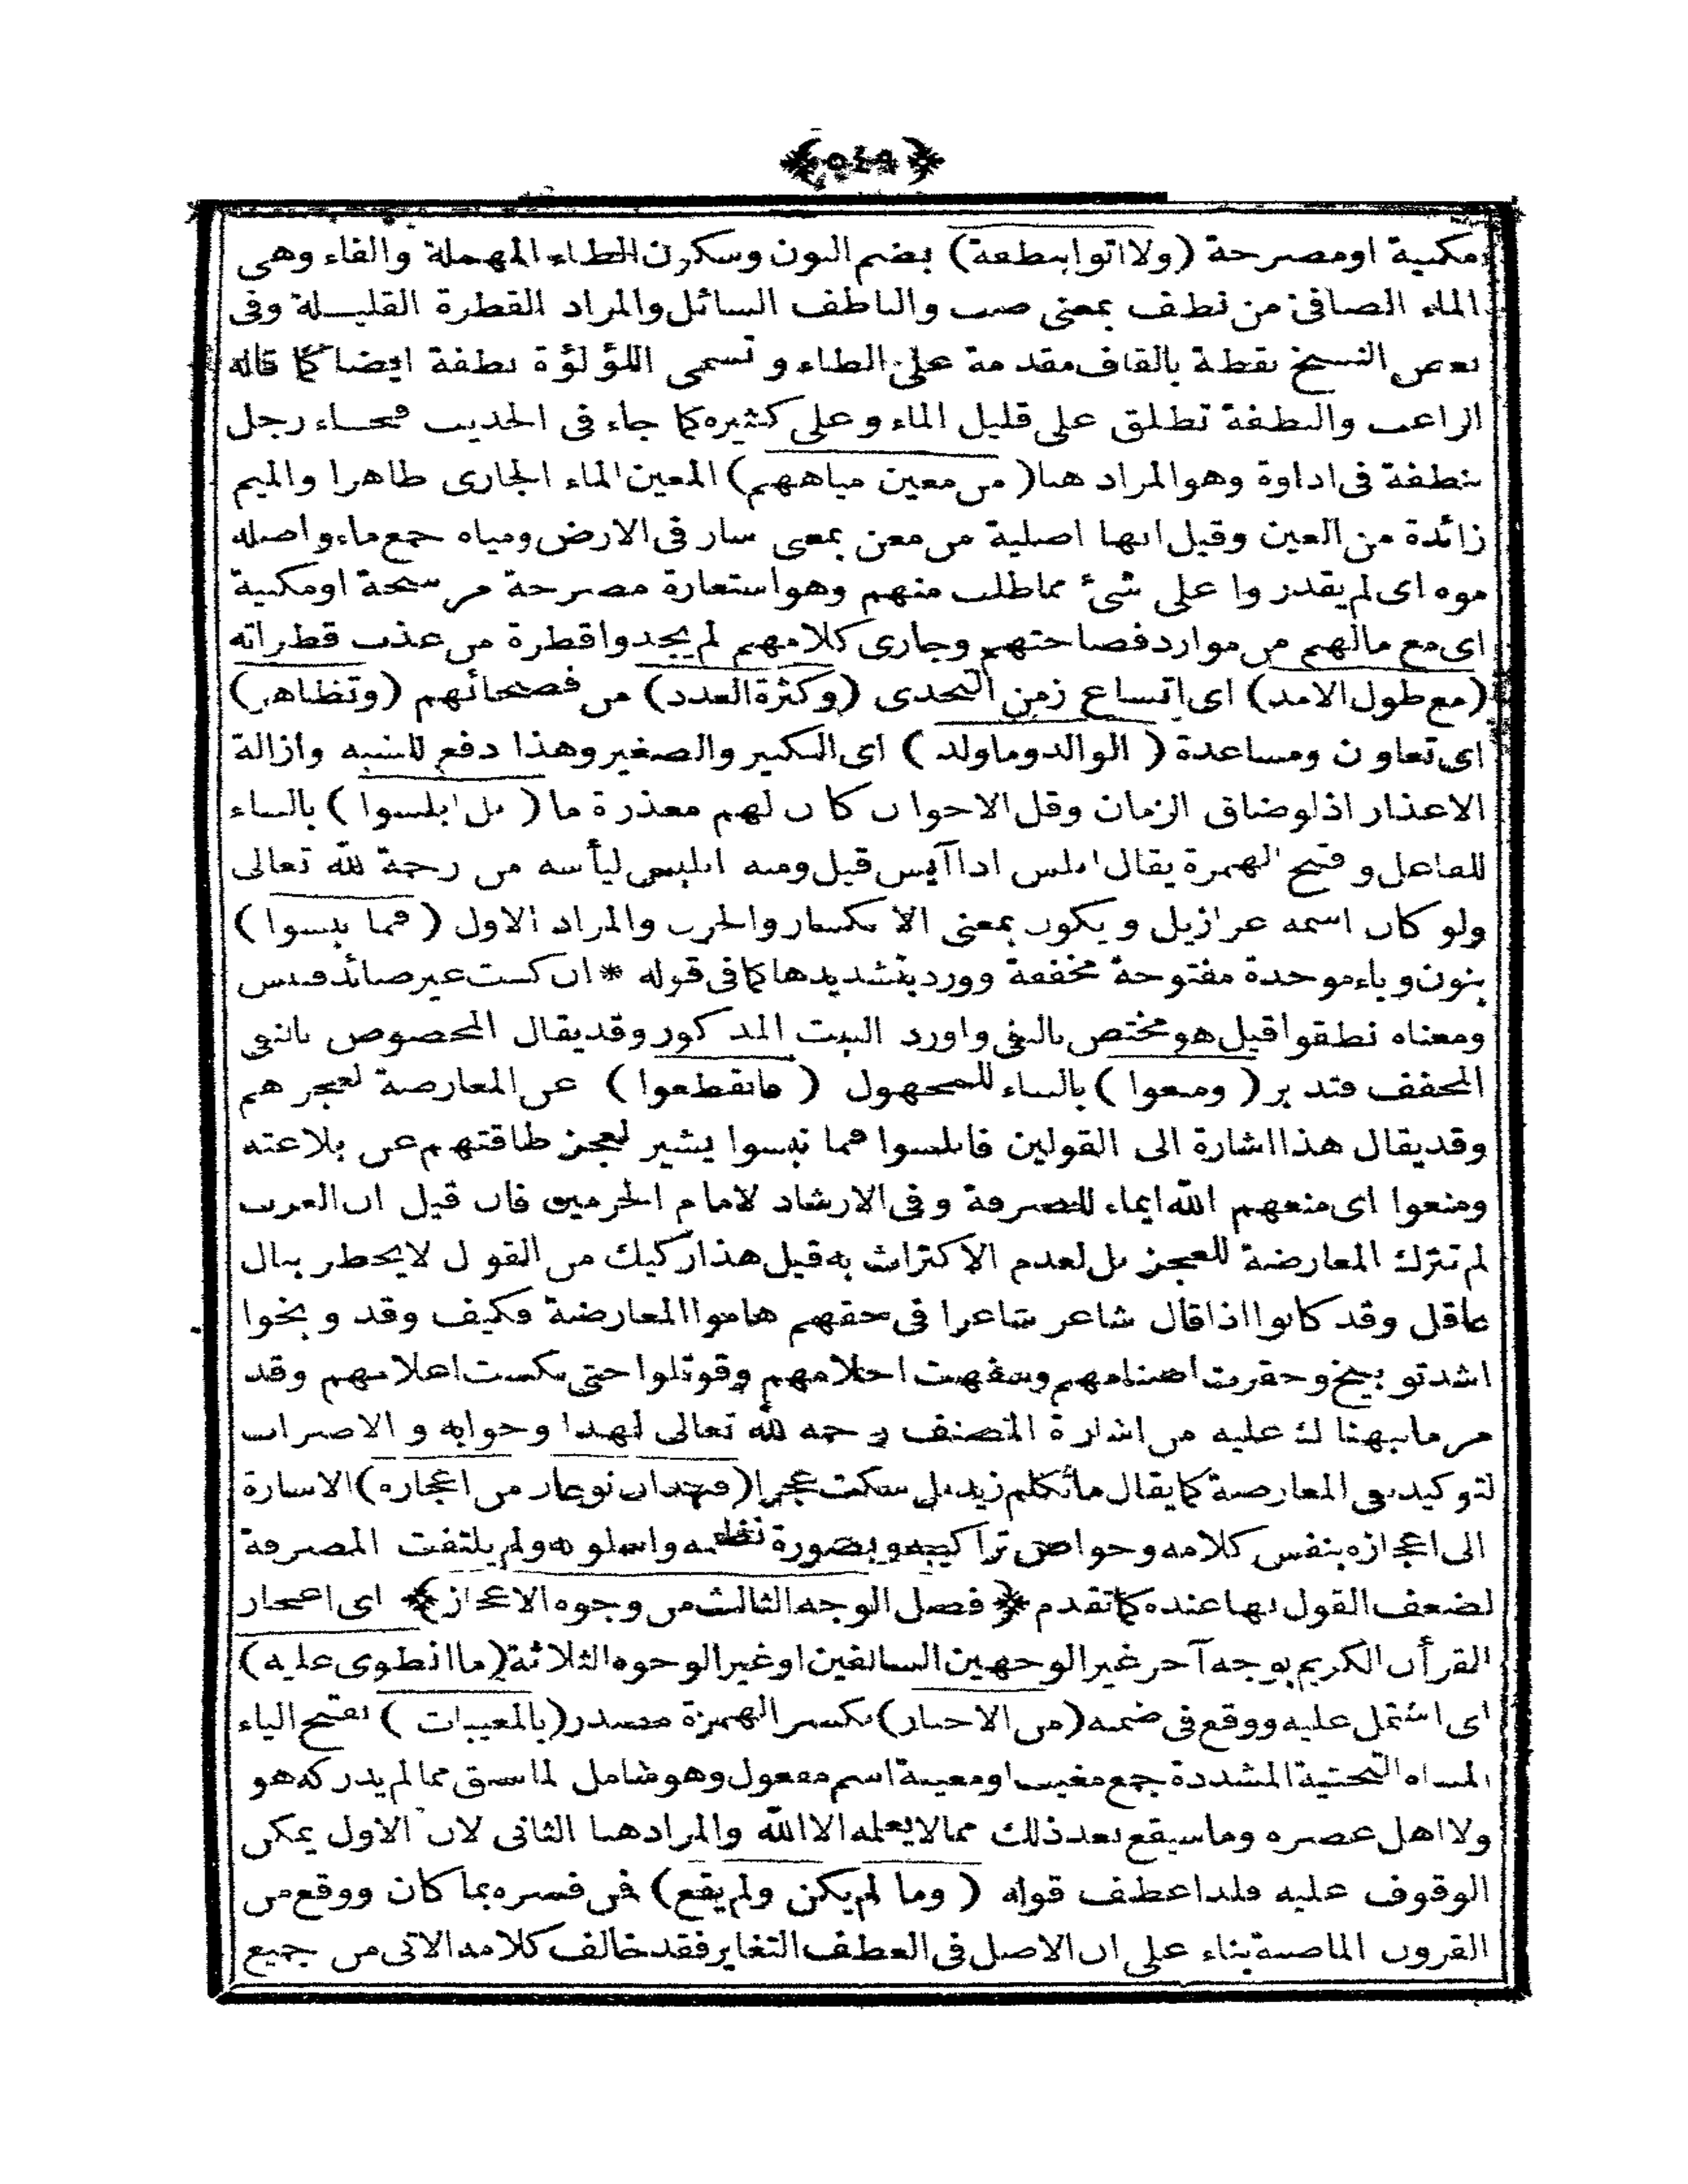 ﴿٥٤٩﴾
مكنية او مصرحة (ولا اتوا بنطفة) بضم النون وسكون الطاء المهملة والفاء وهى
الماء الصافى من نطف بمعنى صب والناطف السائل والمراد القطرة القليلة وفى
بعض النسخ نقطة بالقاف مقدمة على الطاء وتسمى اللؤلؤة نطفة ايضا كما قاله
الراغب والنطفة تطلق على قليل الماء وعلى كثيره كما جاء فى الحديث فجاء رجل
بنطفة فى اداوة وهو المراد هنا (من معين مياههم) المعين الماء الجارى ظاهرا والميم
زائدة من العين وقيل انها اصلية من معن بمعنى سار فى الارض ومياه جمع ماء واصله
موه اى لم يقدروا على شئ مما طلب منهم وهو استعارة مصرحة مرشحة او مكنية
اى مع مالهم من موارد فصاحتهم وجارى كلامهم لم يجدوا قطرة من عذب قطراته
(مع طول الامد) اى اتساع زمن التحدى (وكثرة العدد) من فصحائهم (وتظاهر)
اى تعاون ومساعدة (الوالد وما ولد) اى الكبير والصغير وهذا دفع للشبه وازالة
الاعذار اذ لو ضاق الزمان وقل الاخوان كان لهم معذرة ما (بل ابلسوا) بالبناء
للفاعل وفتح الهمزة يقال ابلس اذا آيس قيل ومنه ابليس ليأسه من رحمة الله تعالى
ولو كان اسمه عزازيل ويكون بمعنى الانكسار والحزن والمراد الاول (فما نبسوا)
بنون وباء موحدة مفتوحة مخففة وورد بتشديدها كما فى قوله * ان كنت غير صائد فنبس
ومعناه نطقوا قيل هو مختص بالنفى واورد البيت المذكور وقد يقال المخصوص بالنفى
المخفف فتدبر (ومنعوا) بالبناء للمجهول (فانقطعوا) عن المعارضة لعجزهم
وقد يقال هذا اشارة الى القولين فابلسوا فما نبسوا يشير لعجز طاقتهم عن بلاغته
ومنعوا اى منعهم الله ايماء للصرفة وفى الارشاد لامام الحرمين فان قيل ان العرب
لم تترك المعارضة للعجز بل لعدم الاكتراث به قيل هذا ركيك من القول لا يخطر ببال
عاقل وقد كانوا اذا قال شاعر شاعرا فى حقهم هاموا المعارضة فكيف وقد وبخوا
اشد توبيخ وحقرت اصنامهم وسفهت احلامهم وقوتلوا حتى نكست اعلامهم وقد
مر ما ينبهنا لك عليه من اشارة المصنف رحمه الله تعالى لهذا وجوابه والاضراب
لتوكيد نفى المعارضة كما يقال ما تكلم زيد بل سكت عجزا (فهذان نوعان من اعجازه) الاشارة
الى اعجازه بنفس كلامه وخواص تراكيبه وبصورة نظمه واسلوبه ولم يلتفت الصرفة
لضعف القول بها عنده كما تقدم ﴿فصل الوجه الثالث من وجوه الاعجاز﴾ اى اعجاز
القرأن الكريم بوجه آخر غير الوجهين السابقين او غير الوجوه الثلاثة (ما انطوى عليه)
اى اشتمل عليه ووقع فى ضمنه (من الاخبار) بكسر الهمزة مصدر (بالمغيبات) بفتح الياء
المثناة التحتية المشددة جمع مغيب او مغيبة اسم مفعول وهو شامل لما سبق مما لم يدركه هو
ولا اهل عصره وما سيقع بعد ذلك مما لا يعلمه الا الله والمراد هنا الثانى لان الاول يمكن
الوقوف عليه فلذا عطف قوله (وما لم يكن ولم يقع) فمن فسره بما كان ووقع من
القرون الماضية بناء على ان الاصل فى العطف التغاير فقد خالف كلامه الاتى من جميع